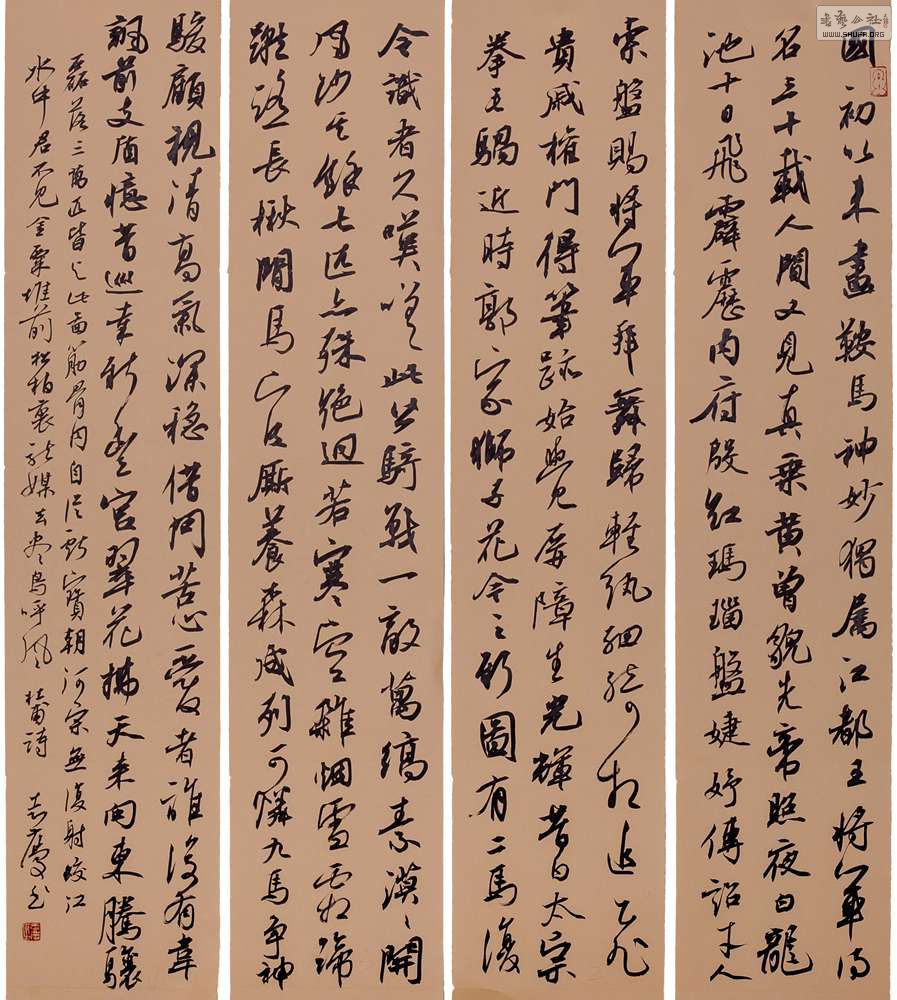 國初以來畫鞍馬神妙獨屬江都王將軍得
名三十載人間又見真乘黃曾貌先帝照夜白龍
池十日飛霹靂內府殷紅瑪瑙盤婕妤傳詔才人
索盤賜將軍拜舞歸輕紈細綺相追飛
貴戚權門得筆跡始覺屏障生光輝昔日太宗
拳毛騧近時郭家獅子花今之新圖有二馬復
令識者久嘆嗟此皆騎戰一敵萬縞素漠〻開
風沙其餘七匹亦殊絕迥若寒空雜烟雪霜蹄
蹴踏長楸間馬官廝養森成列可憐九馬爭神
駿顧視清高氣深穩借問苦心愛者誰後有韋
諷前支遁憶昔巡幸新豐宮翠花拂天來向東騰驤
磊落三萬匹皆與此圖筋骨同自從獻寶朝河宗無復射蛟江
水中君不見金粟堆前松柏裏龍媒去盡鳥呼風 杜甫詩 志慶書
書藝公社
WWW.SHUFA.ORG